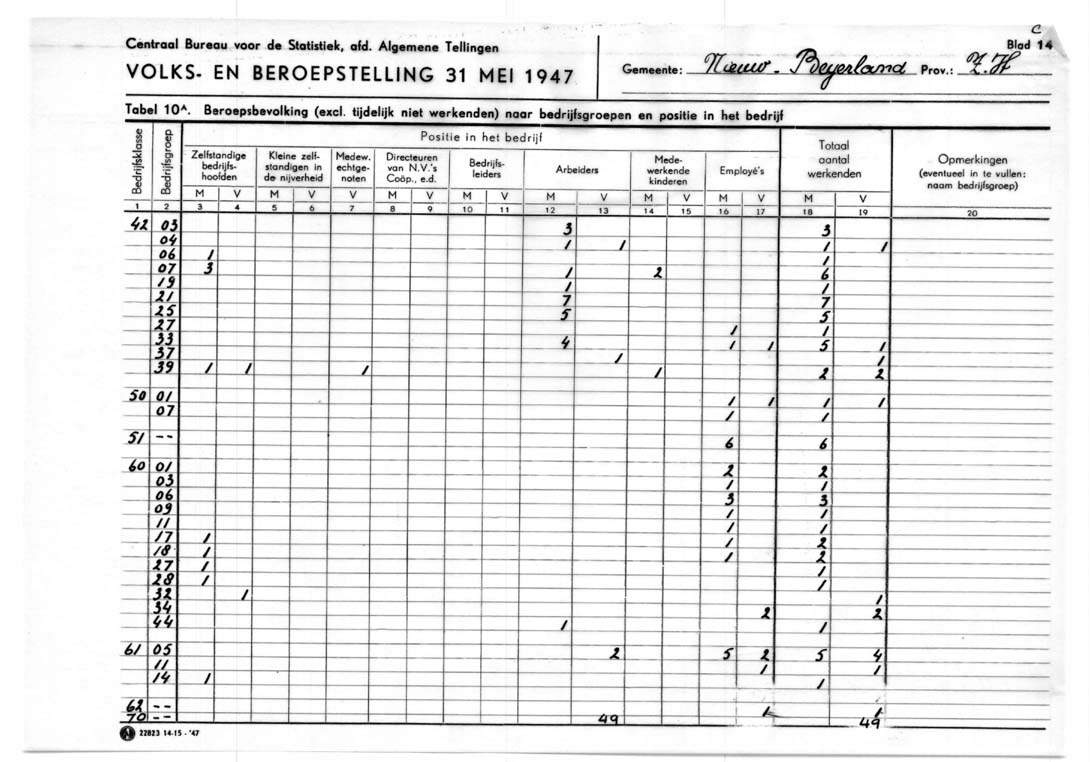 C
Centraal Bureau voor de Statistiek, afd. Algemene Tellingen
Blad 14
VOLKS- EN BEROEPSTELLING 31 MEI 1947
Gemeente: Nieuw-Beyerland Prov.: Z.H
Tabel 10ᴬ. Beroepsbevolking (excl. tijdelijk niet werkenden) naar bedrijfsgroepen en positie in het bedrijf
Bedrijfsklasse Bedrijfsgroep Positie in het bedrijf Totaal aantal werkenden Opmerkingen (eventueel in te vullen: naam bedrijfsgroep)
Zelfstandige bedrijfs-hoofden Kleine zelf-standigen in de nijverheid Medew. echtge-noten Directeuren van N.V.'s Coöp., e.d. Bedrijfs-leiders Arbeiders Mede-werkende kinderen Employé's
M V M V V M V M V M V M V M V M V
1 2 3 4 5 6 7 8 9 10 11 12 13 14 15 16 17 18 19 20
42 03 3 3
04 1 1 1 1
06 1 1
07 3 1 2 6
19 1 1
21 7 7
25 5 5
27 1 1
33 4 1 1 5 1
37 1 1
39 1 1 1 1 2 2
50 01 1 1 1 1
07 1 1
51 -- 6 6
60 01 2 2
03 1 1
06 3 3
09 1 1
11 1 1
17 1 1 2
18 1 1 2
27 1 1
28 1 1
32 1 1
34 2 2
44 1 1
61 05 2 5 2 5 4
11 1 1
14 1 1
62 -- 1 1
70 -- 49 49
22823 14-15 - '47